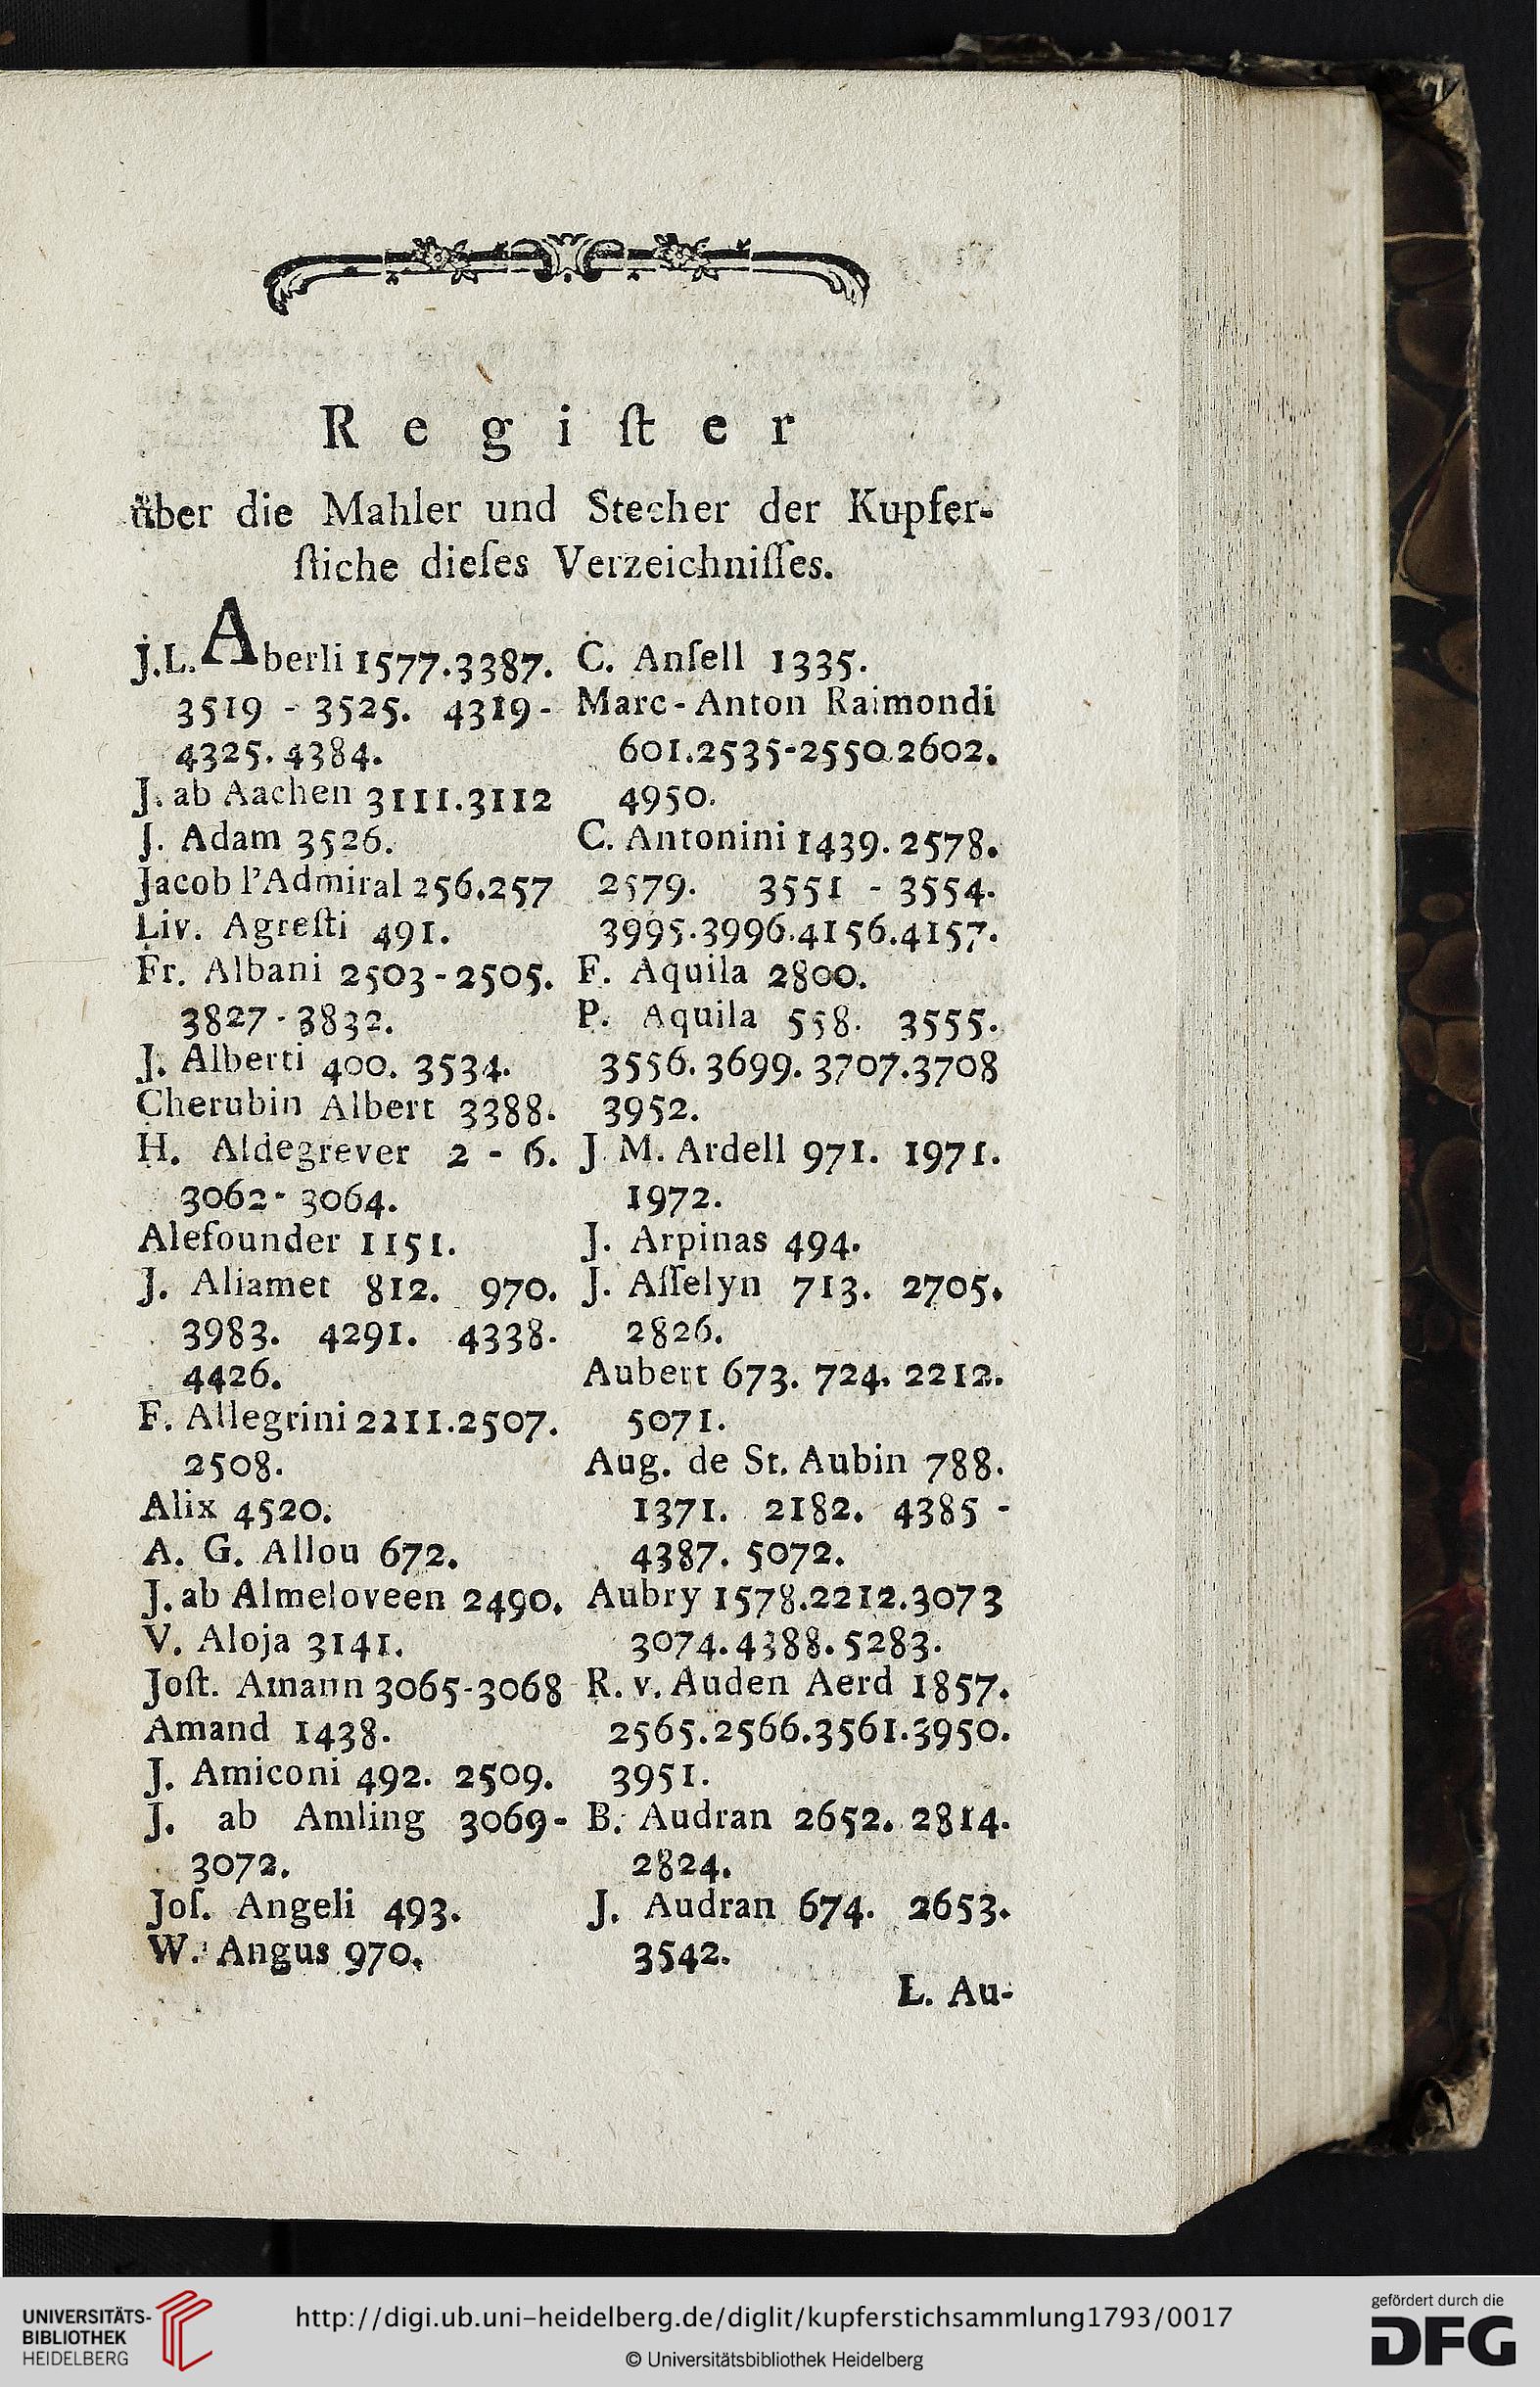 Regiſter
über die Mahler und Stecher der Kupfer-
ſtiche dieſes Verzeichniſſes.
J.L. Aberli 1577.3387.
3519 - 3525. 4319-
4325. 4384.
J. ab Aachen 3111.3112
J. Adam 3526.
Jacob l'Admiral 256.257
Liv. Agreſti 491.
Fr. Albani 2503-2505.
3827-3832.
J. Alberti 400. 3534.
Cherubin Albert 3388.
H. Aldegrever 2 - 6.
3062-3064.
Alefounder 1151.
J. Aliamet 812. 970.
3983. 4291. 4338.
4426.
F. Allegrini 2211.2507.
2508.
Alix 4520.
A. G. Allou 672.
J. ab Almeloveen 2490.
V. Aloja 3141.
Joſt. Amann 3065-3068
Amand 1438.
J. Amiconi 492. 2509.
J. ab Amling 3069-
3072.
Joſ. Angeli 493.
W. Angus 970.
C. Anſell 1335.
Marc-Anton Raimondi
601.2535-2550.2602.
4950.
C. Antonini 1439. 2578.
2579. 3551 - 3554.
3995.3996.4156.4157.
F. Aquila 2800.
P. Aquila 558. 3555.
3556. 3699. 3707.3708
3952.
J M. Ardell 971. 1971.
1972.
J. Arpinas 494.
J. Aſſelyn 713. 2705.
2826.
Aubert 673. 724. 2212.
5071.
Aug. de St. Aubin 788.
1371. 2182. 4385 -
4387. 5072.
Aubry 1578.2212.3073
3074. 4388. 5283.
R. v. Auden Aerd 1857.
2565.2566.3561.3950.
3951.
B. Audran 2652. 2814.
2824.
J. Audran 674. 2653.
3542.
L. Au-
UNIVERSITÄTS-
BIBLIOTHEK
HEIDELBERG
http://digi.ub.uni-heidelberg.de/diglit/kupferstichsammlung1793/0017
© Universitätsbibliothek Heidelberg
gefördert durch die
DFG